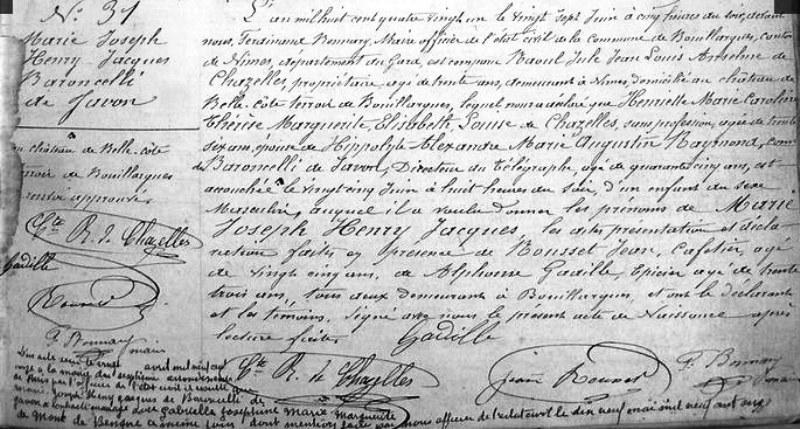 N° 31
Marie Joseph
Henry Jacques
Baroncelli
de Javon
au château de Belle-côte
terroir de Bouillargues
renvoi approuvé.
Cte R. de Chazelles
Gadille
Rousset
P. Bonnary
maire
L'an mil huit cent quatre vingt un le vingt sept Juin à cinq heures du soir, devant
nous, Ferdinand Bonnary, Maire officier de l'état civil de la Commune de Bouillargues, canton
de Nimes, département du Gard, est comparu Raoul Jule Jean Louis Anselme de
Chazelles, propriétaire, agé de trente ans, demeurant à Nimes, domicilié au château de
Belle-côte terroir de Bouillargues, lequel nous a déclaré que Henriette Marie Caroline
Thérèse Marguerite Elisabeth Louise de Chazelles, sans profession, agée de trente
six ans, épouse de Hippolyte Alexandre Marie Augustin Raymond, comte
de Baroncelli de Javon, Directeur du télégraphe, agé de quarante cinq ans, est
accouchée le vingt cinq Juin à huit heures du soir, d'un enfant du sexe
Masculin, auquel il a voulu donner les prénoms de Marie
Joseph Henry Jacques, les dites présentation et décla
ration faites en présence de Rousset Jean, Cafetier, agé
de vingt cinq ans, de Alphonse Gadille, Epicier agé de trente
trois ans, tous deux demeurant à Bouillargues, et ont le déclarant
et les témoins, signé avec nous le présent acte de Naissance après
lecture faite. Gadille
Cte R. de Chazelles Jean Rousset P. Bonnary
maire
Par acte avril mil neuf
à la mairie du septième arrondissement
de Paris par l'officier de l'état civil
Marie Joseph Henry Jacques de Baroncelli de
Javon a contracté mariage avec Gabrielle Joséphine Marie Marguerite
de Mont de Benque dont mention faite par nous officier de l'état civil le dix neuf mai mil neuf cent